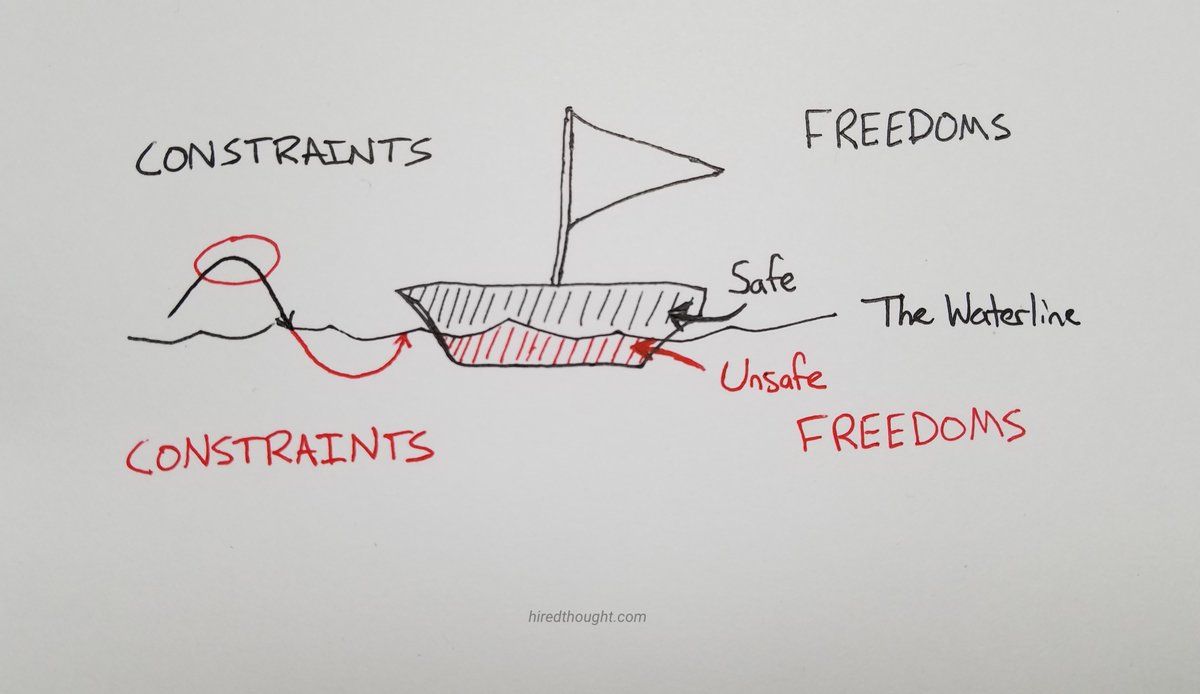 CONSTRAINTS
FREEDOMS
Safe
The Waterline
Unsafe
CONSTRAINTS
FREEDOMS
hiredthought.com